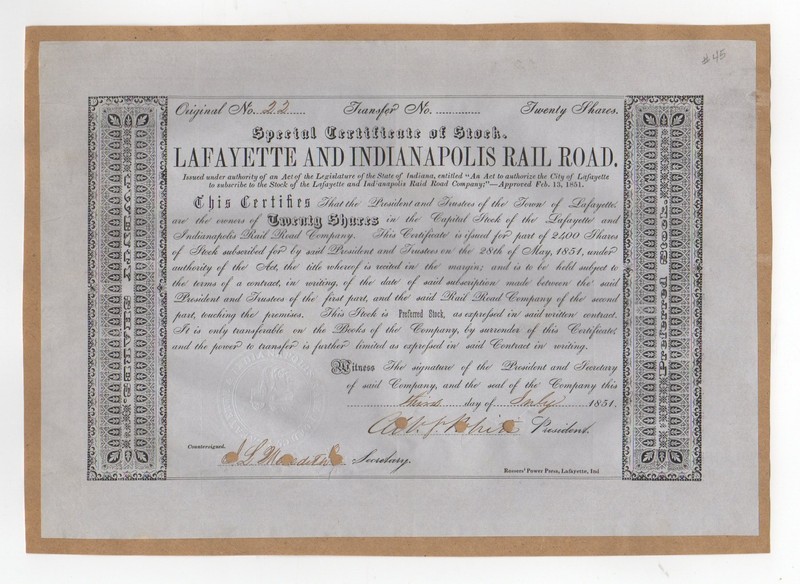 #45
Original No. 22 Transfer No. Twenty Shares.
Special Certificate of Stock.
LAFAYETTE AND INDIANAPOLIS RAIL ROAD.
Issued under authority of an Act of the Legislature of the State of Indiana, entitled "An Act to authorize the City of Lafayette
to subscribe to the Stock of the Lafayette and Indianapolis Raid Road Company;"—Approved Feb. 13, 1851.
This Certifies That the President and Trustees of the Town of Lafayette,
are the owners of Twenty Shares in the Capital Stock of the Lafayette and
Indianapolis Rail Road Company. This Certificate is issued for part of 2400 Shares
of Stock subscribed for by said President and Trustees on the 28th of May, 1851, under
authority of the Act, the title whereof is recited in the margin; and is to be held subject to
the terms of a contract, in writing, of the date of said subscription made between the said
President and Trustees of the first part, and the said Rail Road Company of the second
part, touching the premises. This Stock is Preferred Stock, as expressed in said written contract.
It is only transferable on the Books of the Company, by surrender of this Certificate,
and the power to transfer is further limited as expressed in said Contract in writing.
Witness The signature of the President and Secretary
of said Company, and the seal of the Company this
third day of July 1851.
President.
Countersigned.
Secretary.
Rosser's Power Press, Lafayette, Ind
TWENTY SHARES.
Preferred Stock.